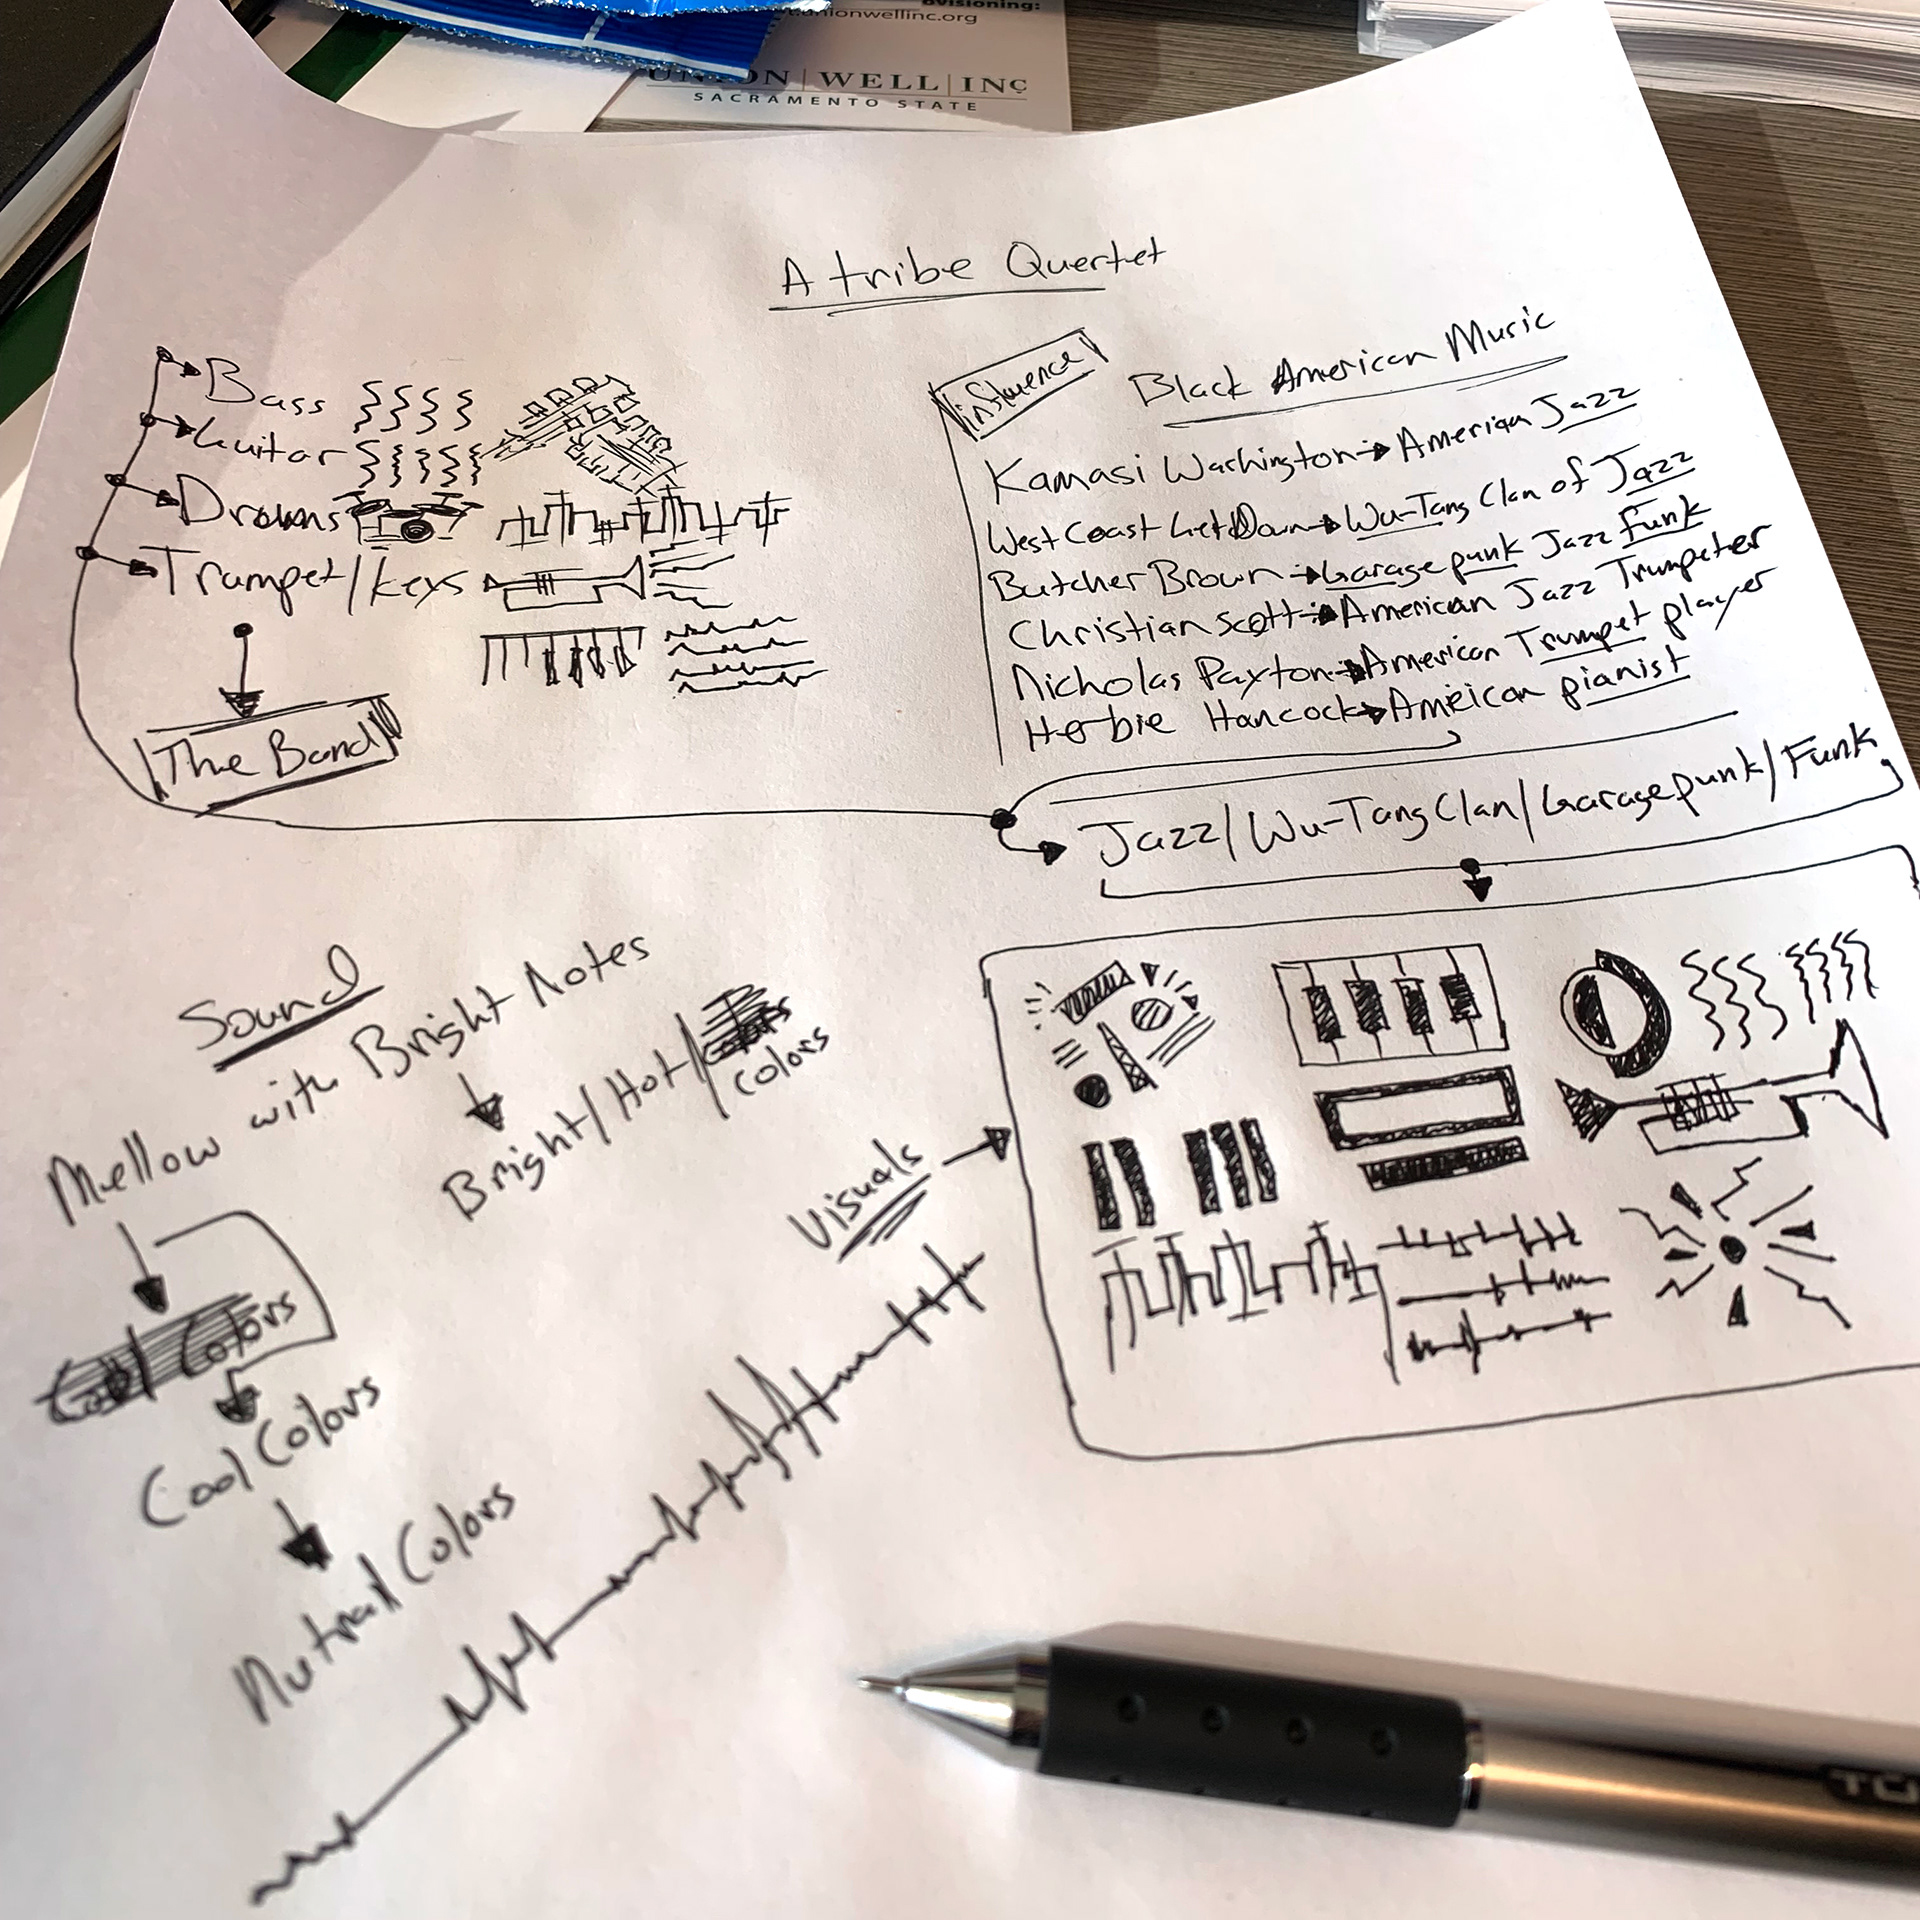 ovisioning:
unionwellinc.org
UNION | WELL | INC
SACRAMENTO STATE
A tribe Quertet
Bass
Guitar
Drums
Trumpet/keys
The Band
influence
Black American Music
Kamasi Washington American Jazz
West Coast Get Down Wu-Tang Clan of Jazz
Butcher Brown Garage punk Jazz Funk
Christian Scott American Jazz Trumpeter
Nicholas Payton American Trumpet player
Herbie Hancock American pianist
Jazz/Wu-Tang Clan/Garage punk/Funk
Sound
Mellow with Bright Notes
Bright/Hot/
Colors
Visuals
Colors
Cool Colors
Nutral Colors